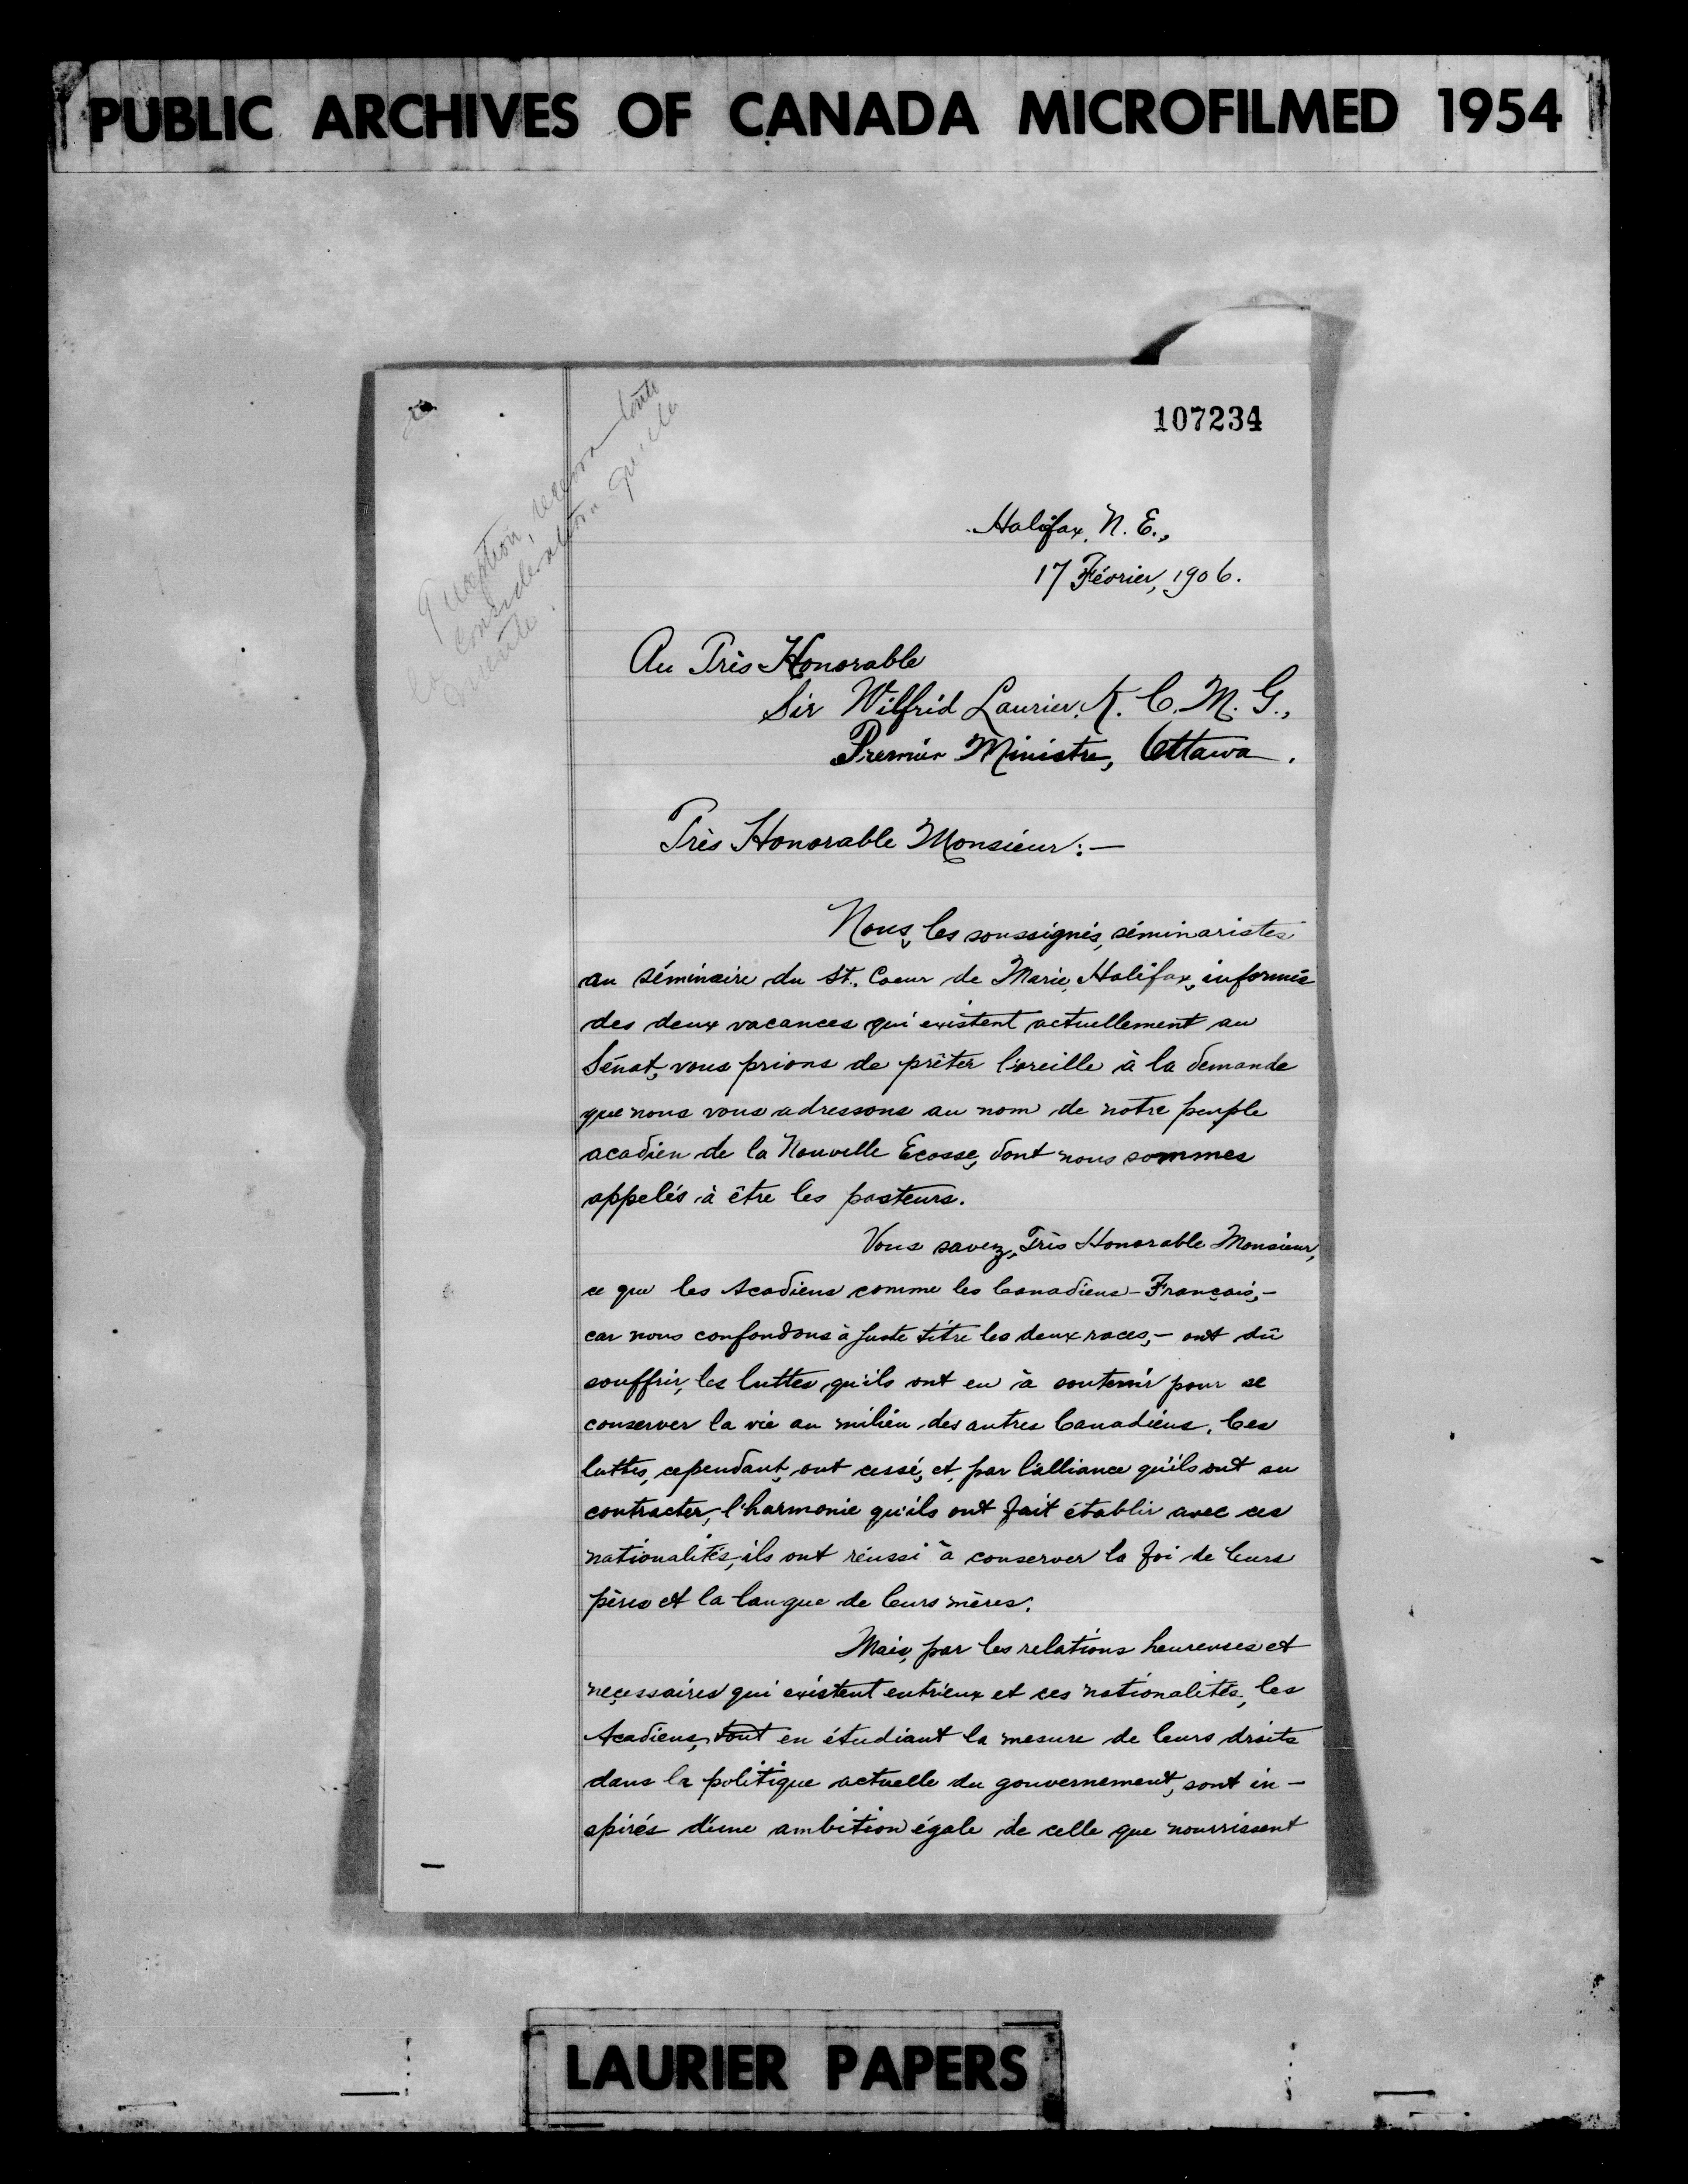 PUBLIC ARCHIVES OF CANADA MICROFILMED 1954
107234
question, recevra toute
la considération qu'elle
mérite.
Halifax, N. E.,
17 Février, 1906.
Au Très Honorable
Sir Wilfrid Laurier, K. C. M. G.,
Premier Ministre, Ottawa.
Très Honorable Monsieur:—
Nous, les soussignés, séminaristes
au séminaire du St. Coeur de Marie, Halifax, informés
des deux vacances qui existent actuellement au
Sénat, vous prions de prêter l'oreille à la demande
que nous vous adressons au nom de notre peuple
acadien de la Nouvelle Ecosse, dont nous sommes
appelés à être les pasteurs.
Vous savez, Très Honorable Monsieur,
ce que les Acadiens comme les Canadiens-Français,-
car nous confondons à juste titre les deux races,- ont dû
souffrir, les luttes qu'ils ont eu à soutenir pour se
conserver la vie au milieu des autres Canadiens. Ces
luttes, cependant, ont cessé, et, par l'alliance qu'ils ont su
contracter, l'harmonie qu'ils ont fait établir avec ces
nationalités, ils ont réussi à conserver la foi de leurs
pères et la langue de leurs mères.
Mais, par les relations heureuses et
neçessaires qui existent entr'eux et ces nationalités, les
Acadiens, tout en étudiant la mesure de leurs droits
dans la politique actuelle du gouvernement, sont in-
spirés d'une ambition égale de celle que nourrissent
LAURIER PAPERS